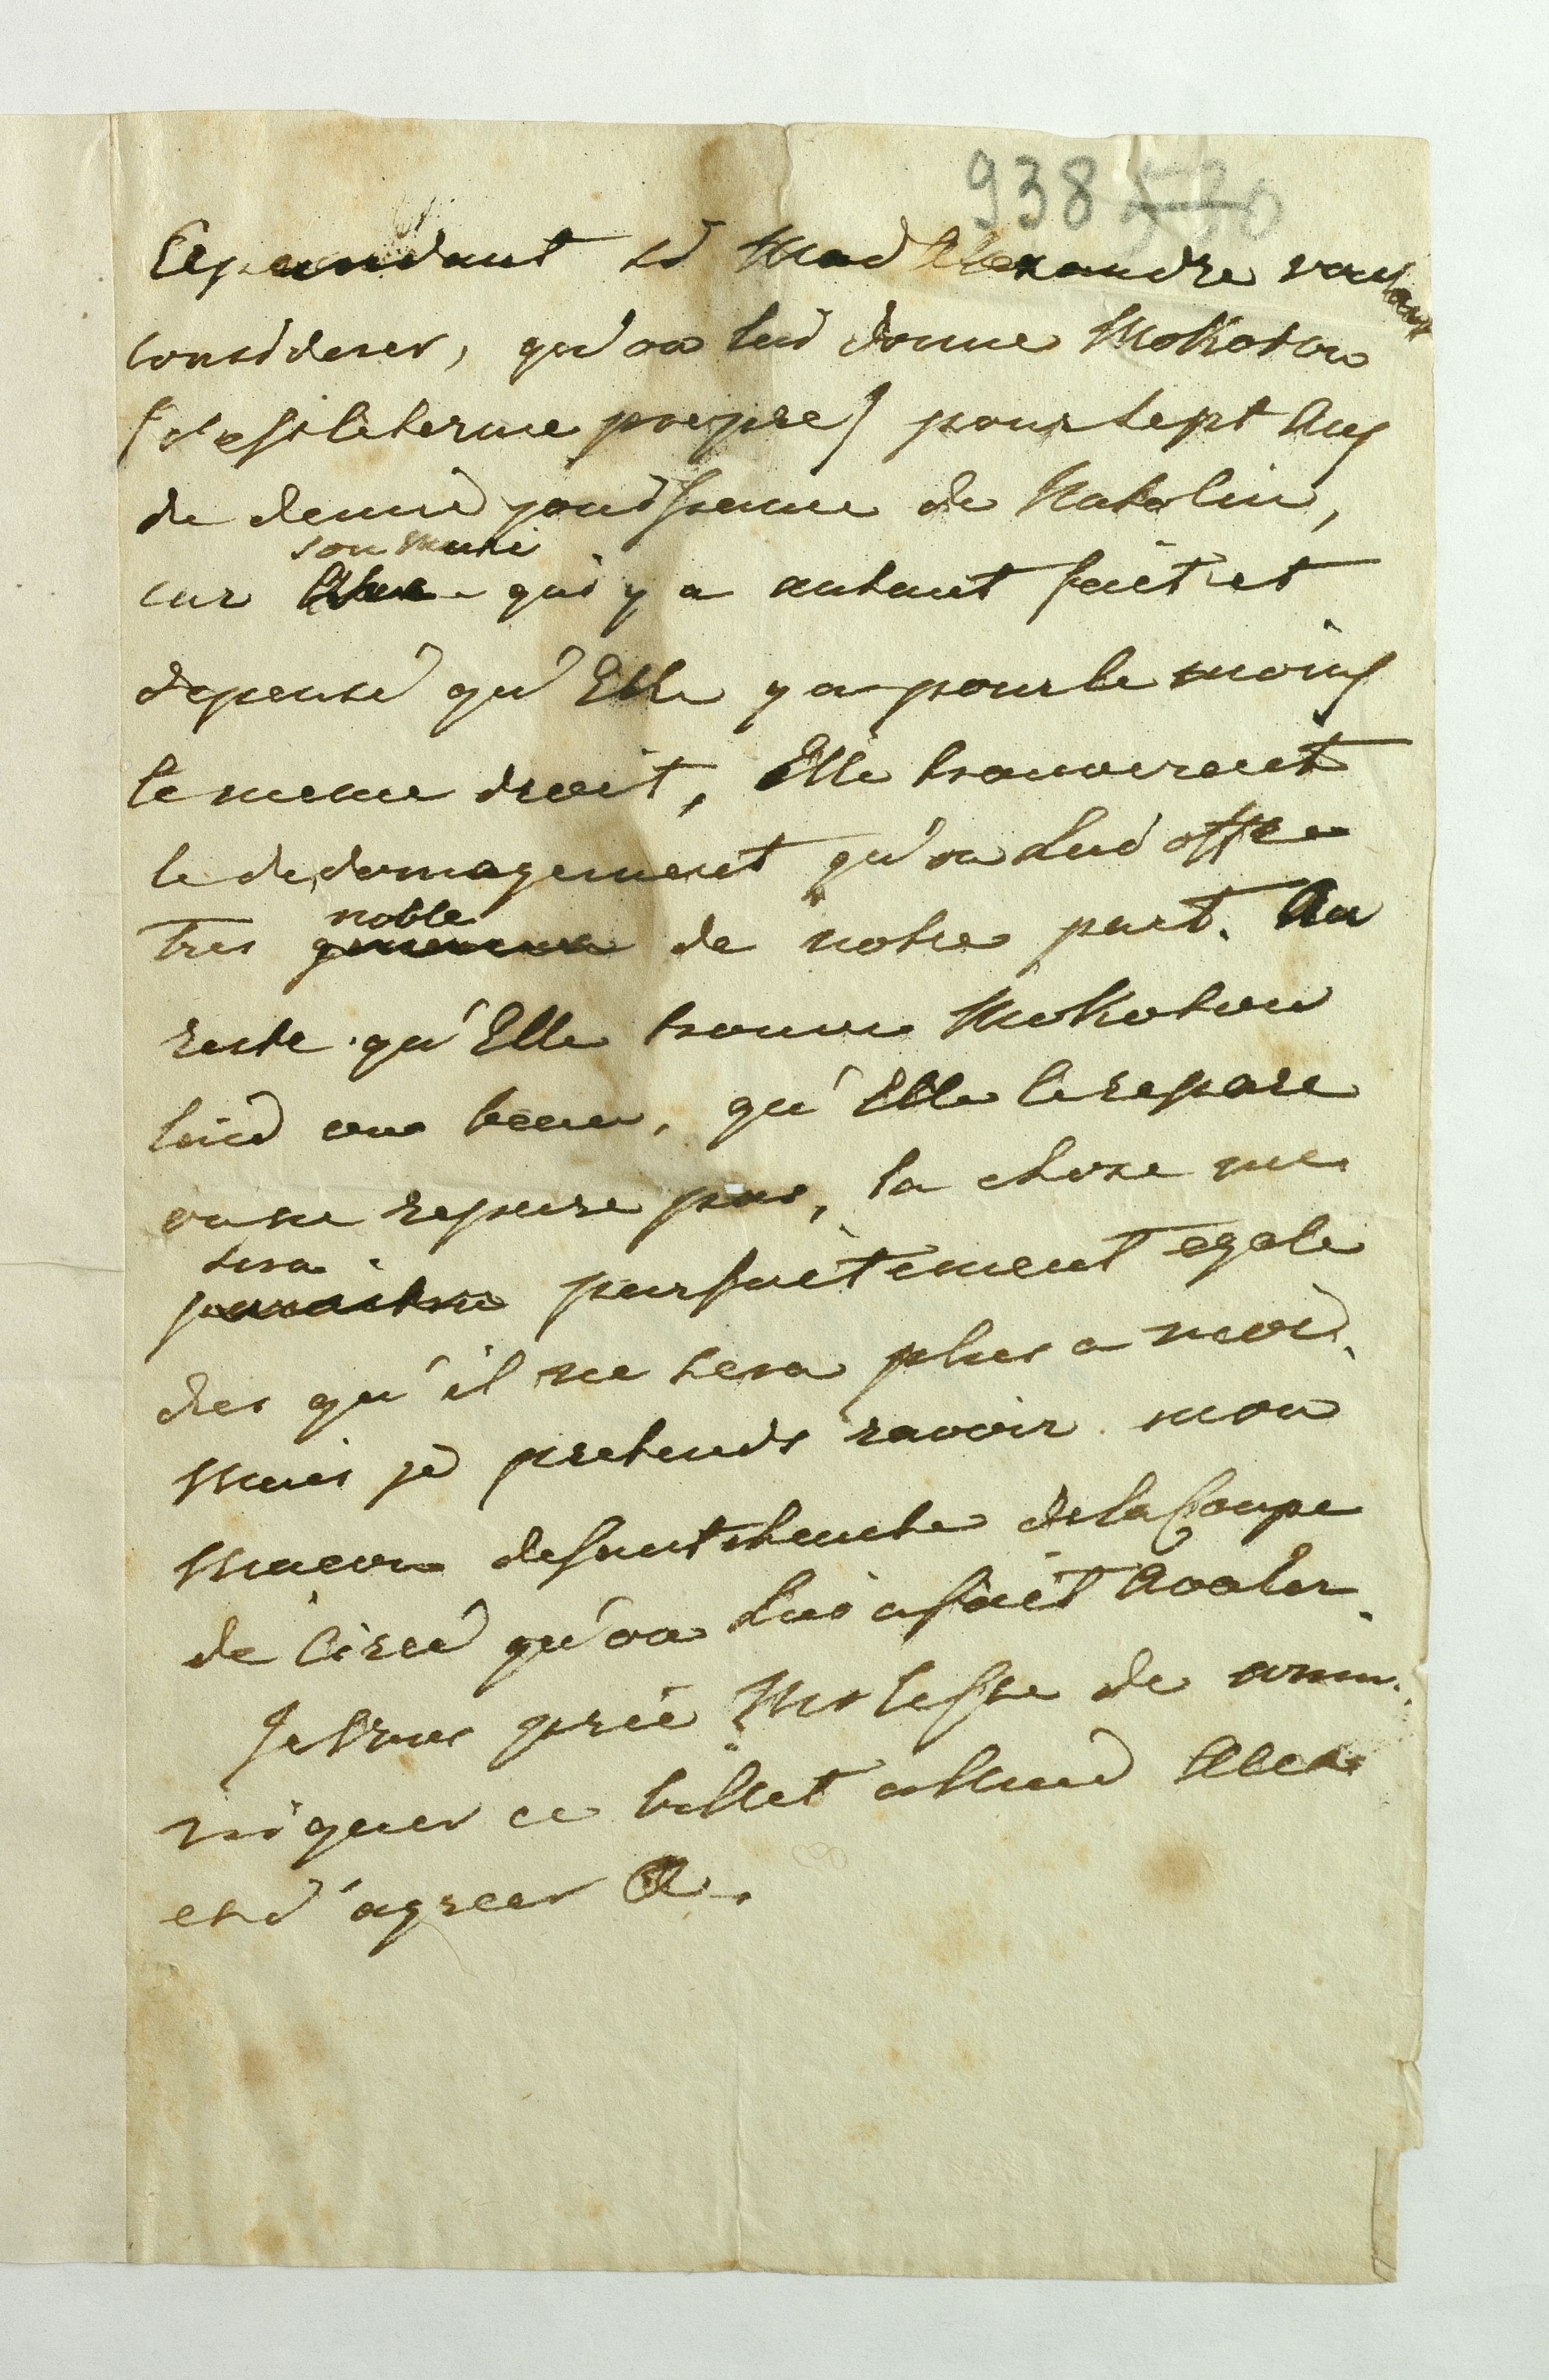 938 530
Cependant si Mad Alexandre voulait
considerer, qu'on lui donne Mokotow
(c'est le terme propre) pour sept Ans
de demie jouissance de Natolin,
son mari
car qui y a autant fait et
depensé qu'Elle y a pour le moins
le meme droit, Elle trouveroit
le dedomagement qu'on Lui offre
noble
tres genereux de notre part. Au
reste qu'Elle trouve Mokotow
laid ou beau, qu'Elle le repare
ou ne repare pas, la chose me
sera
paraitra parfaitement egale
des qu'il ne sera plus a moi.
Mais je pretends ravoir mon
Macon desentchanté de la Coupe
de Circé qu'on Lui a fait Avaler.
Je Vous prie de comu-
niquer ce billet a Mad Alex
et d'agreer